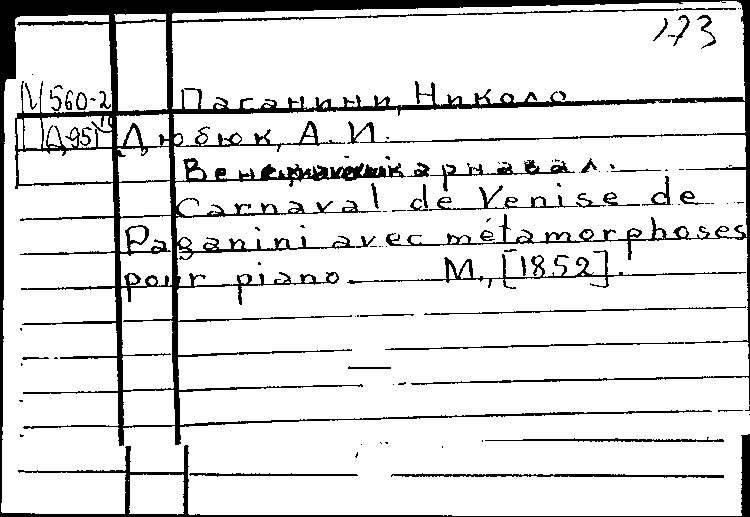 173
N 560-2 Паганини, Николо
Д 951 Дюбюк, А. И.
карнавал.
Carnaval de Venise de
Paganini avec métamorphoses
pour piano. М., [1852].